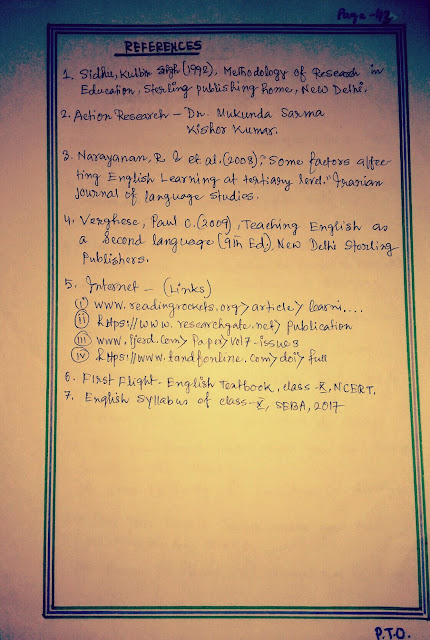 Page-42
REFERENCES
1. Sidhu, Kulbir Singh (1992), Methodology of Research in
Education, Sterling publishing home, New Delhi.
2. Action Research – Dr. Mukunda Sarma
Kishor Kumar.
3. Narayanan, R & et al. (2008), "Some factors affec-
ting English Learning at tertiary level." Iranian
journal of language studies.
4. Verghese, Paul C. (2009), Teaching English as
a Second language (9th Ed), New Delhi Sterling
Publishers.
5. Internet – (Links)
(i) www.readingrockets.org> article> learni....
(ii) https://www.researchgate.net> publication
(iii) www.ijerd.com> Paper> Vol7-issue8
(iv) https://www.tandfonline.com> doi> full
6. First Flight - English Textbook, class-X, NCERT.
7. English Syllabus of class-X, SEBA, 2017
P.T.O.